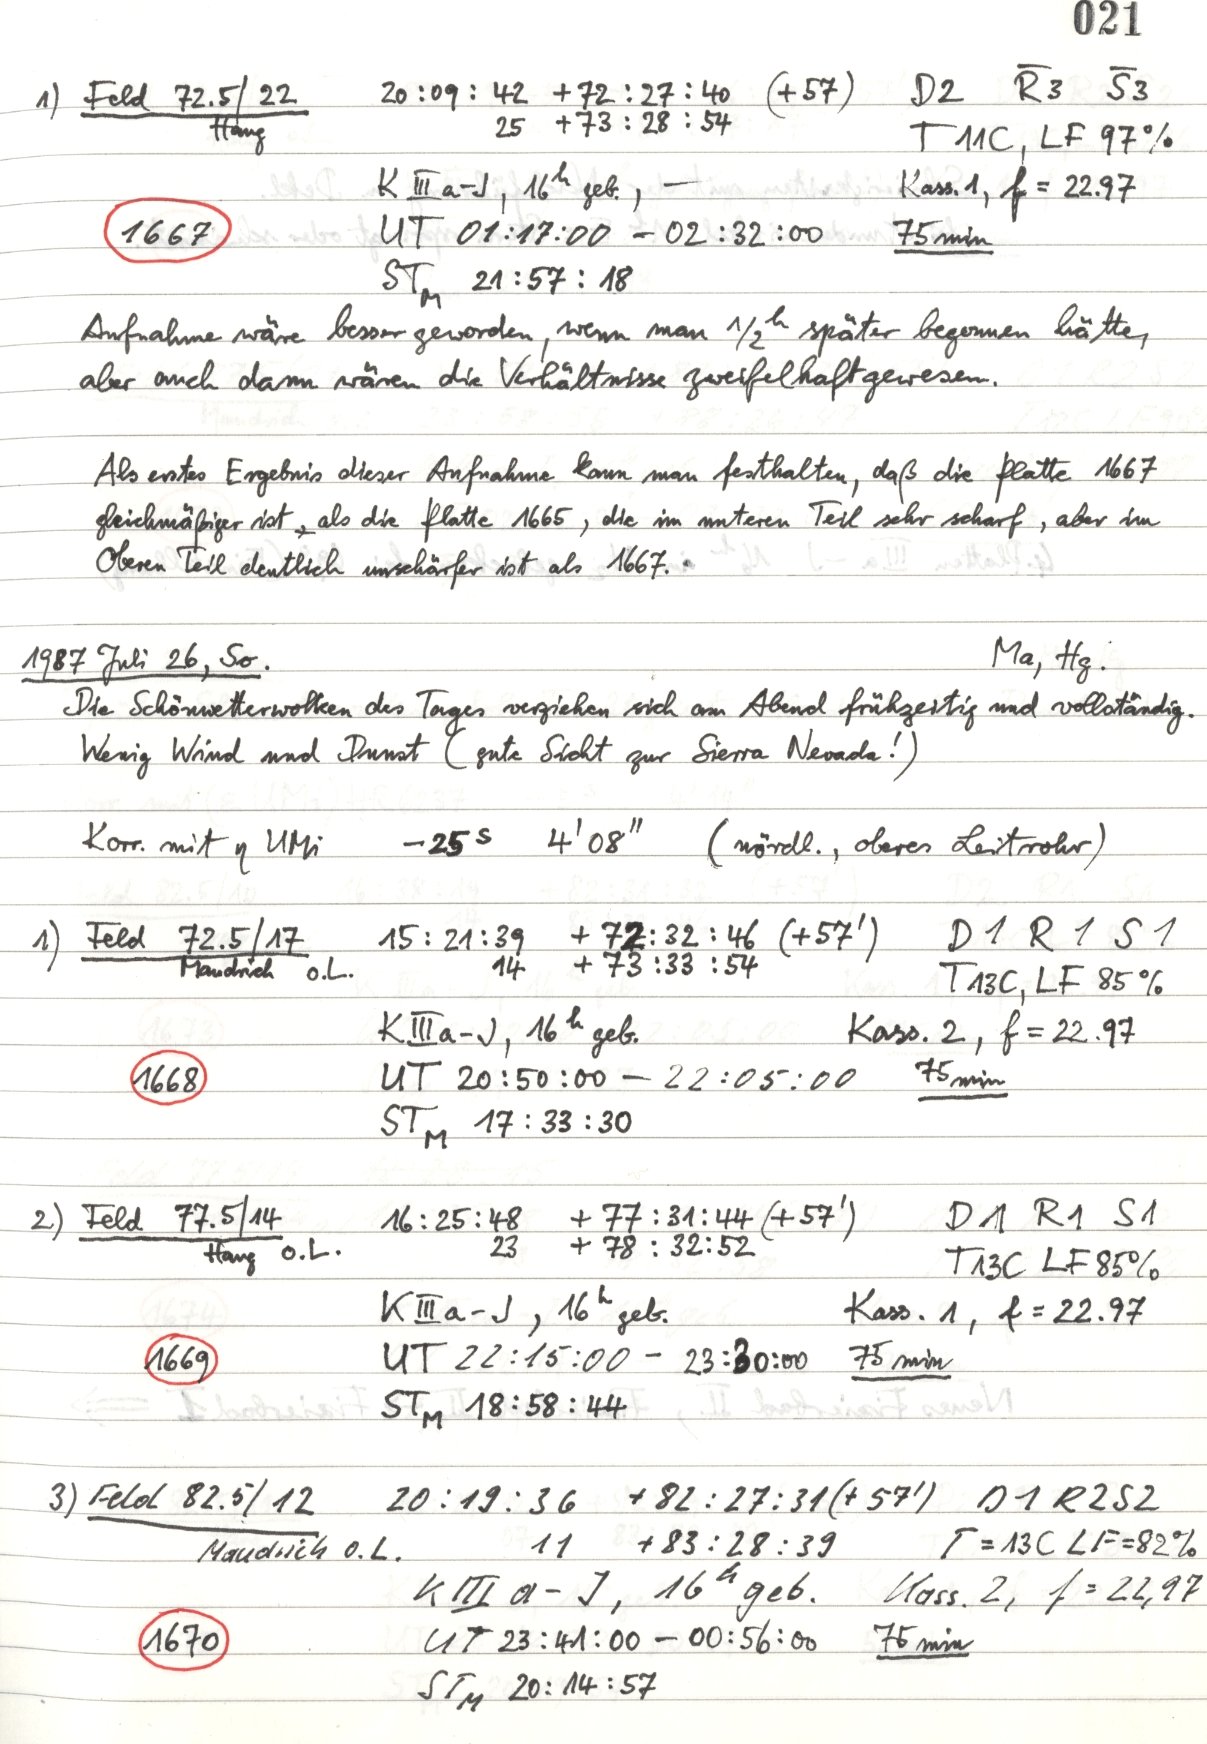 021
1) Feld 72.5/22 20:09:42 +72:27:40 (+57) D2 R̅3 S̅3
Haug 25 +73:28:54 T 11C, LF 97%
K IIIa-J, 16h geb., — Kass. 1, f = 22.97
1667 UT 01:17:00 - 02:32:00 75 min
STM 21:57:18
Aufnahme wäre besser geworden, wenn man 1/2h später begonnen hätte,
aber auch dann wären die Verhältnisse zweifelhaft gewesen.
Als erstes Ergebnis dieser Aufnahme kann man festhalten, daß die Platte 1667
gleichmäßiger ist, als die Platte 1665, die im unteren Teil sehr scharf, aber im
Oberen Teil deutlich unschärfer ist als 1667.
1987 Juli 26, So. Ma, Hg.
Die Schönwetterwolken des Tages verziehen sich am Abend frühzeitig und vollständig.
Wenig Wind und Dunst (gute Sicht zur Sierra Nevada!)
Korr. mit η UMi -25s 4'08" (nördl., oberes Leitrohr)
1) Feld 72.5/17 15:21:39 +72:32:46 (+57') D1 R1 S1
Mandrich o.L. 14 +73:33:54 T13C, LF 85%
K IIIa-J, 16h geb. Kass. 2, f = 22.97
1668 UT 20:50:00 - 22:05:00 75 min
STM 17:33:30
2) Feld 77.5/14 16:25:48 +77:31:44 (+57') D1 R1 S1
Haug o.L. 23 +78:32:52 T13C LF 85%
K IIIa-J, 16h geb. Kass. 1, f = 22.97
1669 UT 22:15:00 - 23:30:00 75 min
STM 18:58:44
3) Feld 82.5/12 20:19:36 +82:27:31 (+57') D1 R2 S2
Mandrich o.L. 11 +83:28:39 T = 13C LF = 82%
K III a-J, 16h geb. Kass. 2, f = 22,97
1670 UT 23:41:00 - 00:56:00 75 min
STM 20:14:57